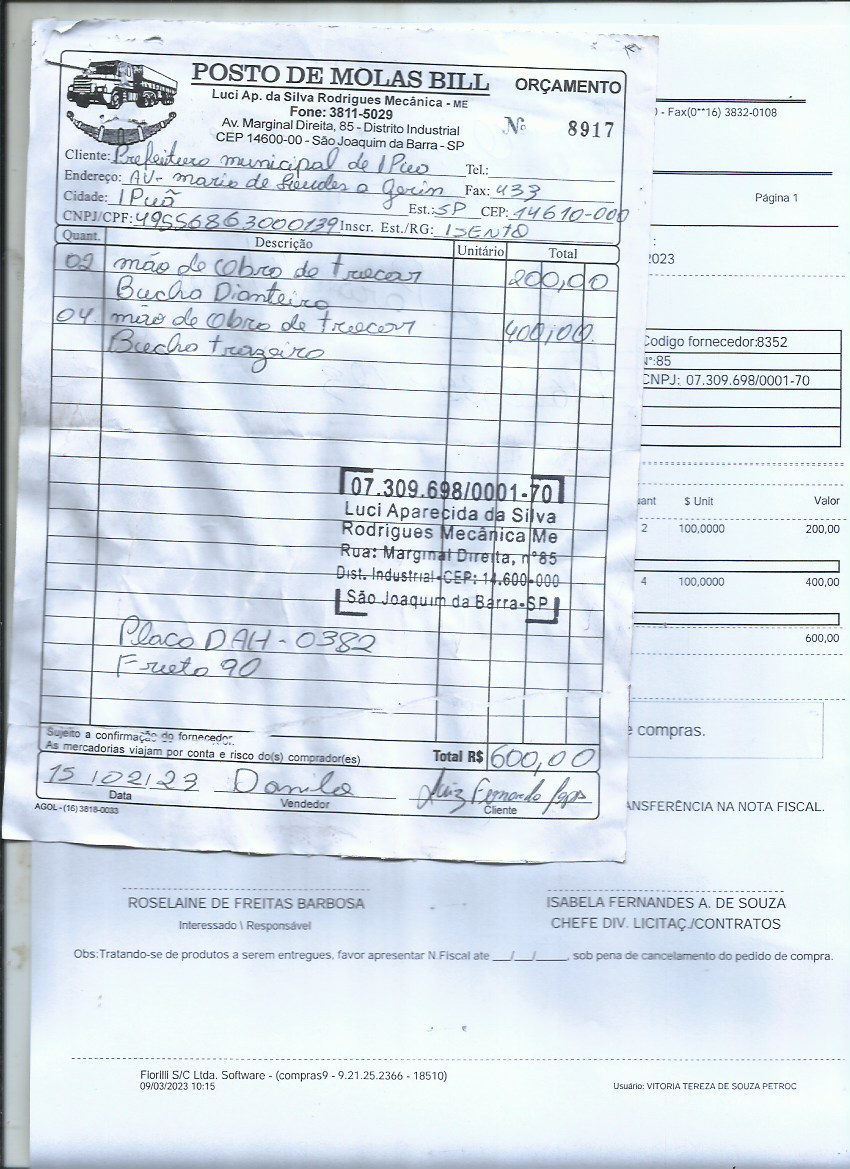 POSTO DE MOLAS BILL
ORÇAMENTO
Luci Ap. da Silva Rodrigues Mecânica - ME
Fone: 3811-5029
Av. Marginal Direita, 85 - Distrito Industrial
CEP 14600-00 - São Joaquim da Barra - SP
Nº 8917
Cliente: Prefeitura municipal de IPuã Tel.:
Endereço: AV- mario de Fax: 433
Cidade: IPuã Est.: SP CEP: 14610-000
CNPJ/CPF: 49556863000139 Inscr. Est./RG: ISENTO
Quant. Descrição Unitário Total
02 mão de Obra de trocar 200,00
Bucha Dianteiro
04 mão de Obra de trocar 400,00
Bucha trazeiro
07.309.698/0001-70
Luci Aparecida da Silva
Rodrigues Mecânica Me
Rua: Marginal Direita, nº85
Dist. Industrial-CEP: 14.600-000
São Joaquim da Barra-SP
Placa DAH-0382
Frota 90
Sujeito a confirmação do fornecedor.
As mercadorias viajam por conta e risco do(s) comprador(es)
Total R$ 600,00
15/02/23 Danilo Luiz Fernando
Data Vendedor Cliente
AGOL - (16) 3818-0033
- Fax(0**16) 3832-0108
Página 1
:
2023
Codigo fornecedor:8352
Nº:85
CNPJ: 07.309.698/0001-70
uant $ Unit Valor
2 100,0000 200,00
4 100,0000 400,00
600,00
e compras.
ANSFERÊNCIA NA NOTA FISCAL.
ROSELAINE DE FREITAS BARBOSA
Interessado \ Responsável
ISABELA FERNANDES A. DE SOUZA
CHEFE DIV. LICITAÇ./CONTRATOS
Obs:Tratando-se de produtos a serem entregues, favor apresentar N.Fiscal ate ___/___/_____, sob pena de cancelamento do pedido de compra.
Fiorilli S/C Ltda. Software - (compras9 - 9.21.25.2366 - 18510)
09/03/2023 10:15
Usuário: VITORIA TEREZA DE SOUZA PETROC